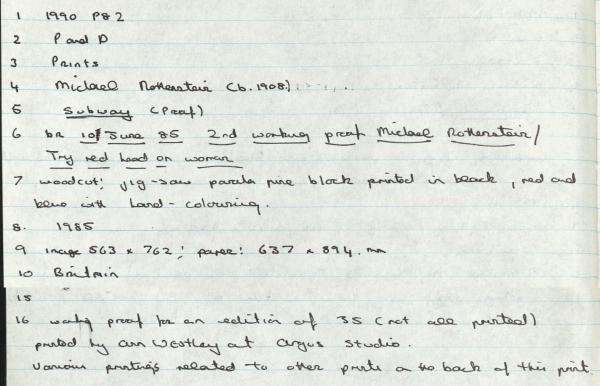 1 1990 P82
2 P and D
3 Prints
4 Michael Rothenstein (b. 1908)
5 Subway (Proof)
6 br 10/ June 85 2nd working proof Michael Rothenstein/
Try red head on woman
7 woodcut; jig-saw parela pine block printed in black, red and
blue with hand-colouring.
8. 1985
9 image 563 x 762; paper: 637 x 894. mm
10 Britain
15
16 working proof for an edition of 35 (not all printed)
printed by Ann Westley at Argus Studio.
Various printings related to other prints on the back of this print.